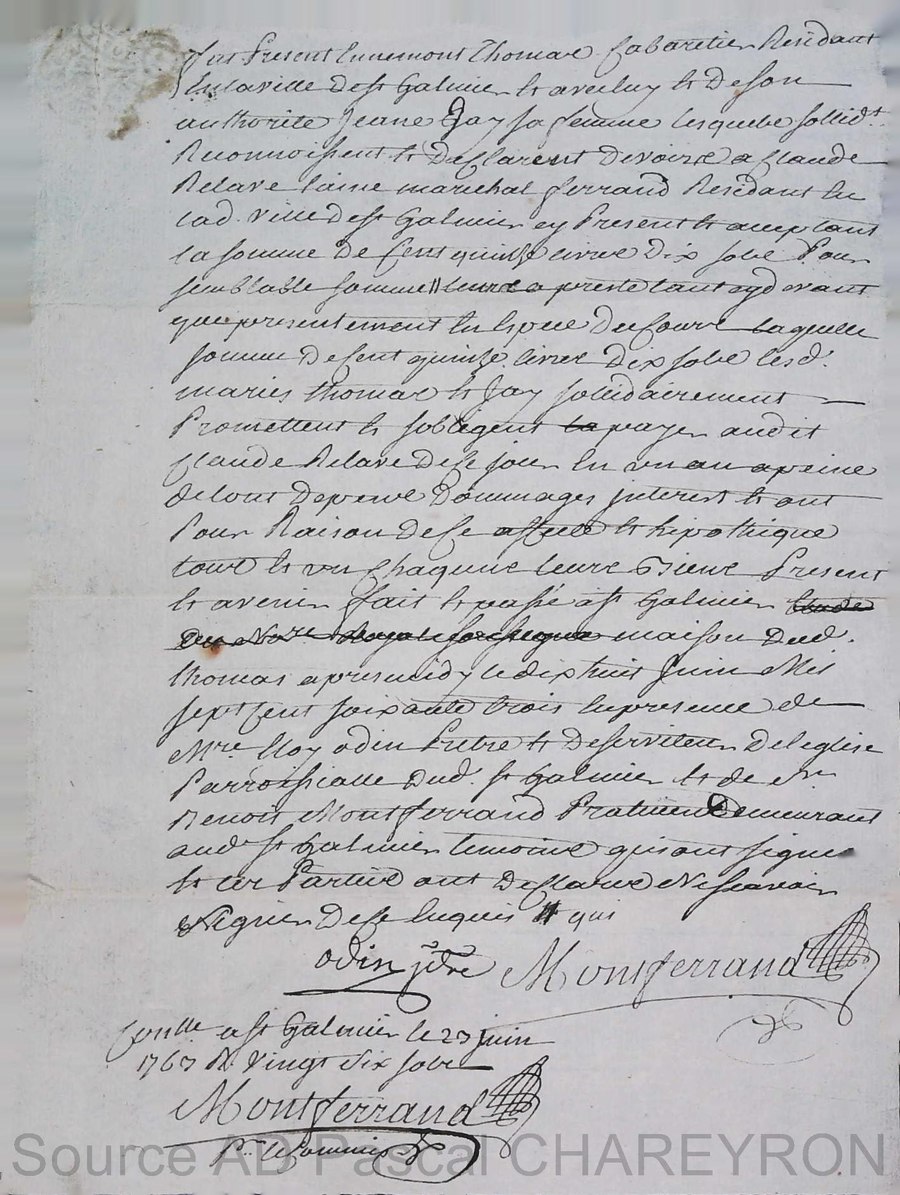 fut Present Ennemont Thomas Cabaretier Residant
En la ville de st Galmier & avec luy & de son
authorite Jeane Jay sa femme lesquels sollidt
Reconnoissent & declarent devoire a Claude
Relave laine marechal ferrand Residant en
lad. ville de st Galmier cy Present & acceptant
la somme de Cent quinze livres dix sols Pour
semblable somme leurs a presté tant cydevant
que presentement en Espece de cours laquelle
somme de Cent quinze livres Dix sols lesd.
maries thomas & Jay sollidairement
Promettent & sobligent payer audit
Claude Relave de ce jour en un an a peine
de tout depens dommages interest & ont
Pour Raison de ce affecté & hipothéqué
tous & un chaqune leurs Biens Present
& avenir fait & passé a st Galmier
maison dud.
thomas apres midy le dix huit Juin Mil
sept Cent soixante trois en presence de
Mre Eloy odin Pretre & deserviteur de leglise
Parroissialle dud. st Galmier & de sr
Benoit Montferrand Praticien demeurant
aud. st Galmier temoins qui ont signé
& les Parties ont declaré ne scavoir
signer de ce enquis qui
odin ptre Montferrand
Conlle a st Galmier le 27 juin
1763 R. vingt six sols
Montferrand
Pr le Commis
Source AD Pascal CHAREYRON